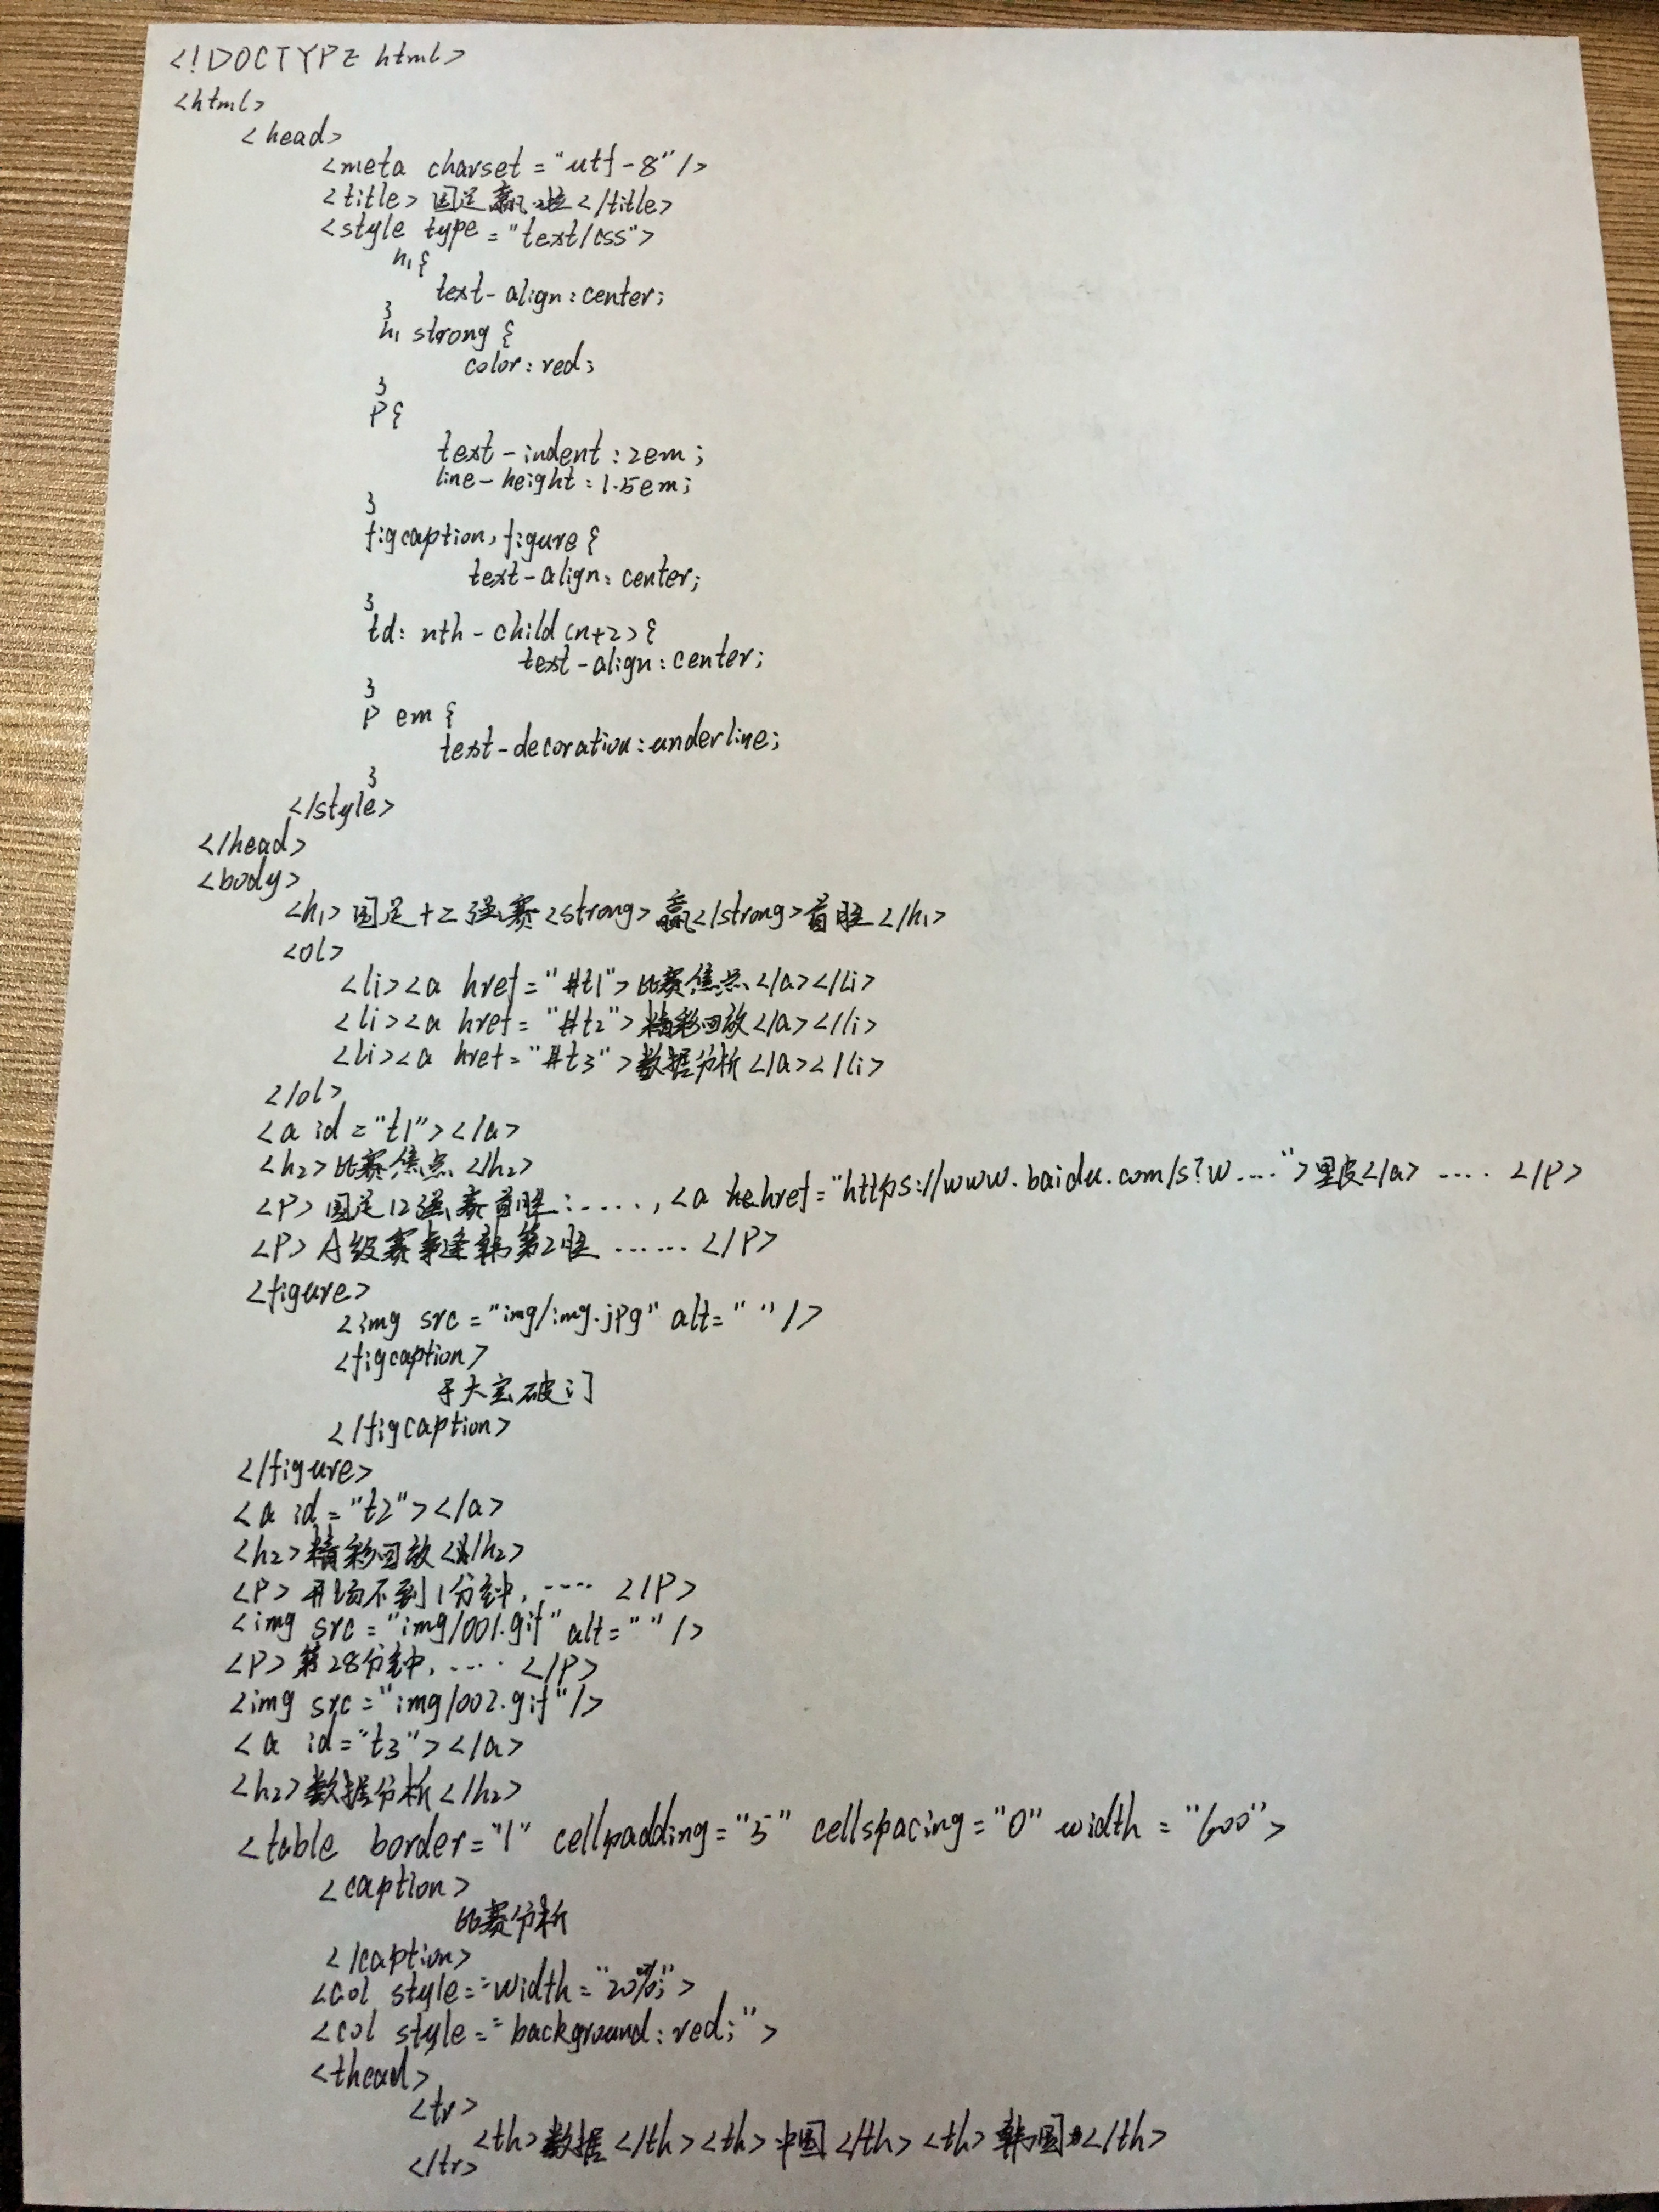 <!DOCTYPE html>
<html>
<head>
<meta charset="utf-8"/>
<title>国足赢啦</title>
<style type="text/css">
h1{
text-align:center;
}
h1 strong{
color:red;
}
P{
text-indent:2em;
line-height:1.5em;
}
figcaption,figure{
text-align:center;
}
td:nth-child(n+2){
text-align:center;
}
P em{
text-decoration:underline;
}
</style>
</head>
<body>
<h1>国足十二强赛<strong>赢</strong>首胜</h1>
<ol>
<li><a href="#t1">比赛焦点</a></li>
<li><a href="#t2">精彩回放</a></li>
<li><a href="#t3">数据分析</a></li>
</ol>
<a id="t1"></a>
<h2>比赛焦点</h2>
<P>国足12强赛首胜:.....,<a href="https://www.baidu.com/s?w....">里皮</a> .... </P>
<P>A级赛事逢韩第2胜 ...... </P>
<figure>
<img src="img/img.jpg" alt=" "/>
<figcaption>
于大宝破门
</figcaption>
</figure>
<a id="t2"></a>
<h2>精彩回放</h2>
<P>开场不到1分钟,.... </P>
<img src="img/001.gif" alt=" "/>
<P>第28分钟,.... </P>
<img src="img/002.gif"/>
<a id="t3"></a>
<h2>数据分析</h2>
<table border="1" cellpadding="5" cellspacing="0" width="600">
<caption>
比赛分析
</caption>
<col style="width="20%;">
<col style="background:red;">
<thead>
<tr>
<th>数据</th><th>中国</th><th>韩国</th>
</tr>